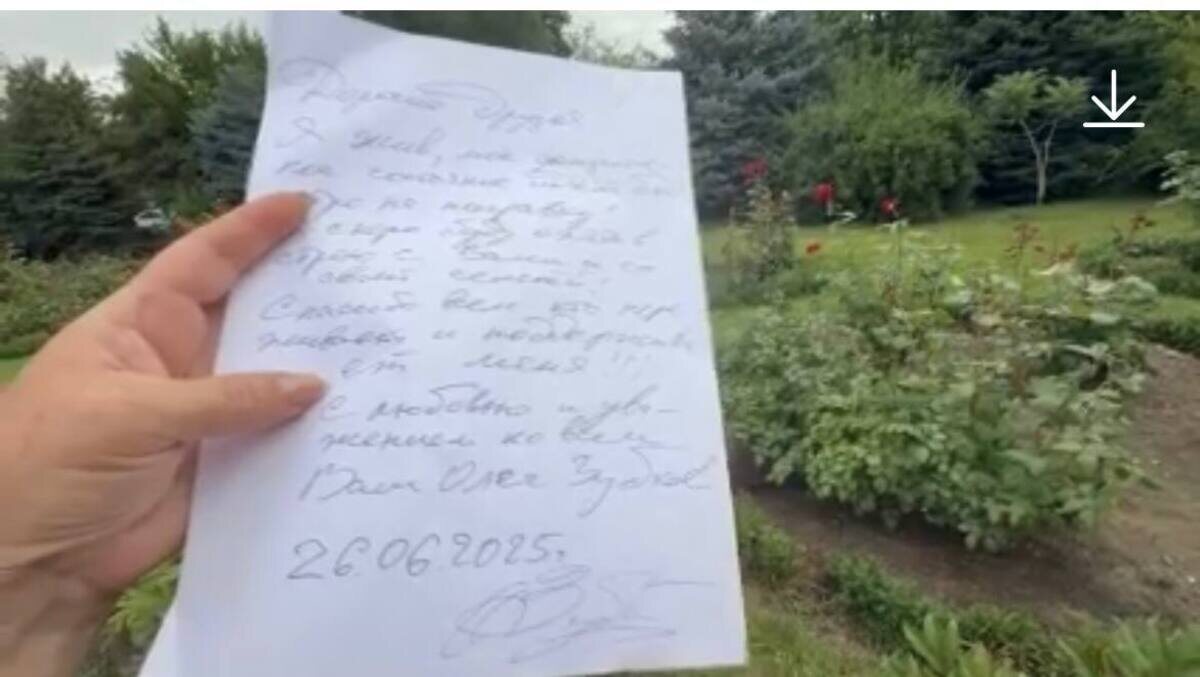 Дорогие Друзья
Я жив, мне
Иду на поправку!
скоро буду опять в
строю с Вами и со
своей семьей!
Спасибо всем кто пере
живает и поддержива
ет меня!!!
С любовью и ува-
жением ко всем
Ваш Олег Зубков
26.06.2025г.